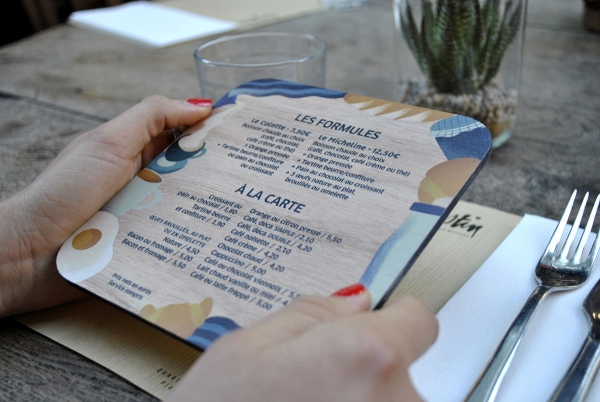 LES FORMULES
Le Colette - 7,50€
Boisson chaude au choix
(café, chocolat,
café crème ou thé)
+ Orange pressée
+ Tartine beurre/confiture
ou pain au chocolat
ou croissant
Le Micheline - 12,50€
Boisson chaude au choix
(café, chocolat, café crème ou thé)
+ Orange pressée
+ Pain au chocolat ou croissant
+ Tartine beurre/confiture
+ 3 œufs nature au plat,
brouillés ou omelette
À LA CARTE
Croissant ou
pain au chocolat / 1,80
Tartine beurre
et confiture / 1,90
ŒUFS BROUILLÉS, AU PLAT
OU EN OMELETTE
Nature / 4,50
Bacon ou fromage / 5,00
Bacon et fromage / 5,50
Orange ou citron pressé / 5,50
Café, déca SIMPLE / 2,10
Café noisette / 2,10
Café, déca DOUBLE / 4,20
Café crème / 4,20
Chocolat chaud / 4,20
Cappuccino / 5,00
Café ou chocolat viennois / 5,00
Lait chaud vanille ou miel / 4,20
Café ou latte frappé / 5,00
Prix nets en euros
Service compris